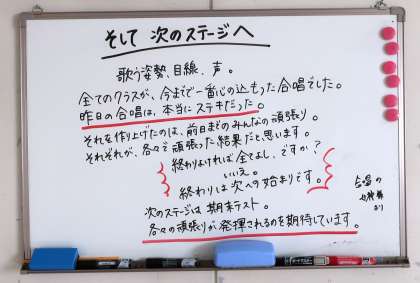 そして 次のステージへ
歌う姿勢、目線、声。
全てのクラスが、今まで一番心の込もった合唱でした。
昨日の合唱は、本当にステキだった。
それを作り上げたのは、前日までのみんなの頑張り。
それぞれが、各々で頑張った結果だと思います。
終わりよければ全てよし、ですか？
いいえ。
終わりは次への始まりです。
次のステージは期末テスト。
各々の頑張りが発揮されるのを期待しています。
合唱の